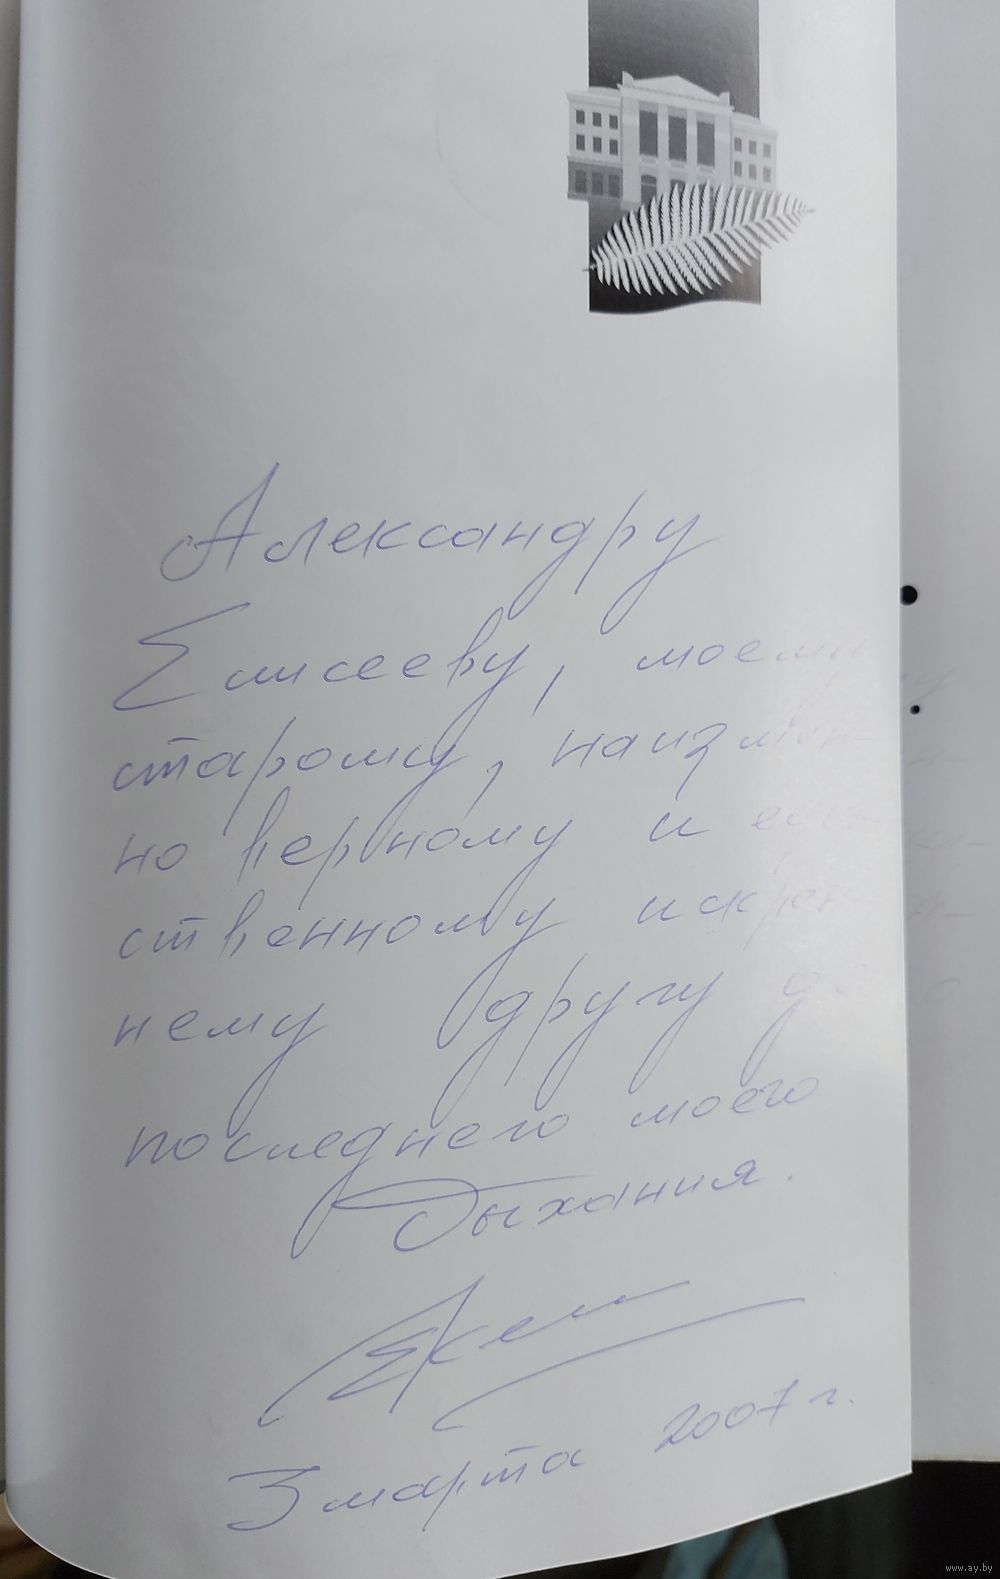 Александру
Елисееву, моему
старому, наизмен-
но верному и един-
ственному искрен-
нему другу до
последнего моего
дыхания.
3 марта 2007 г.
www.ay.by